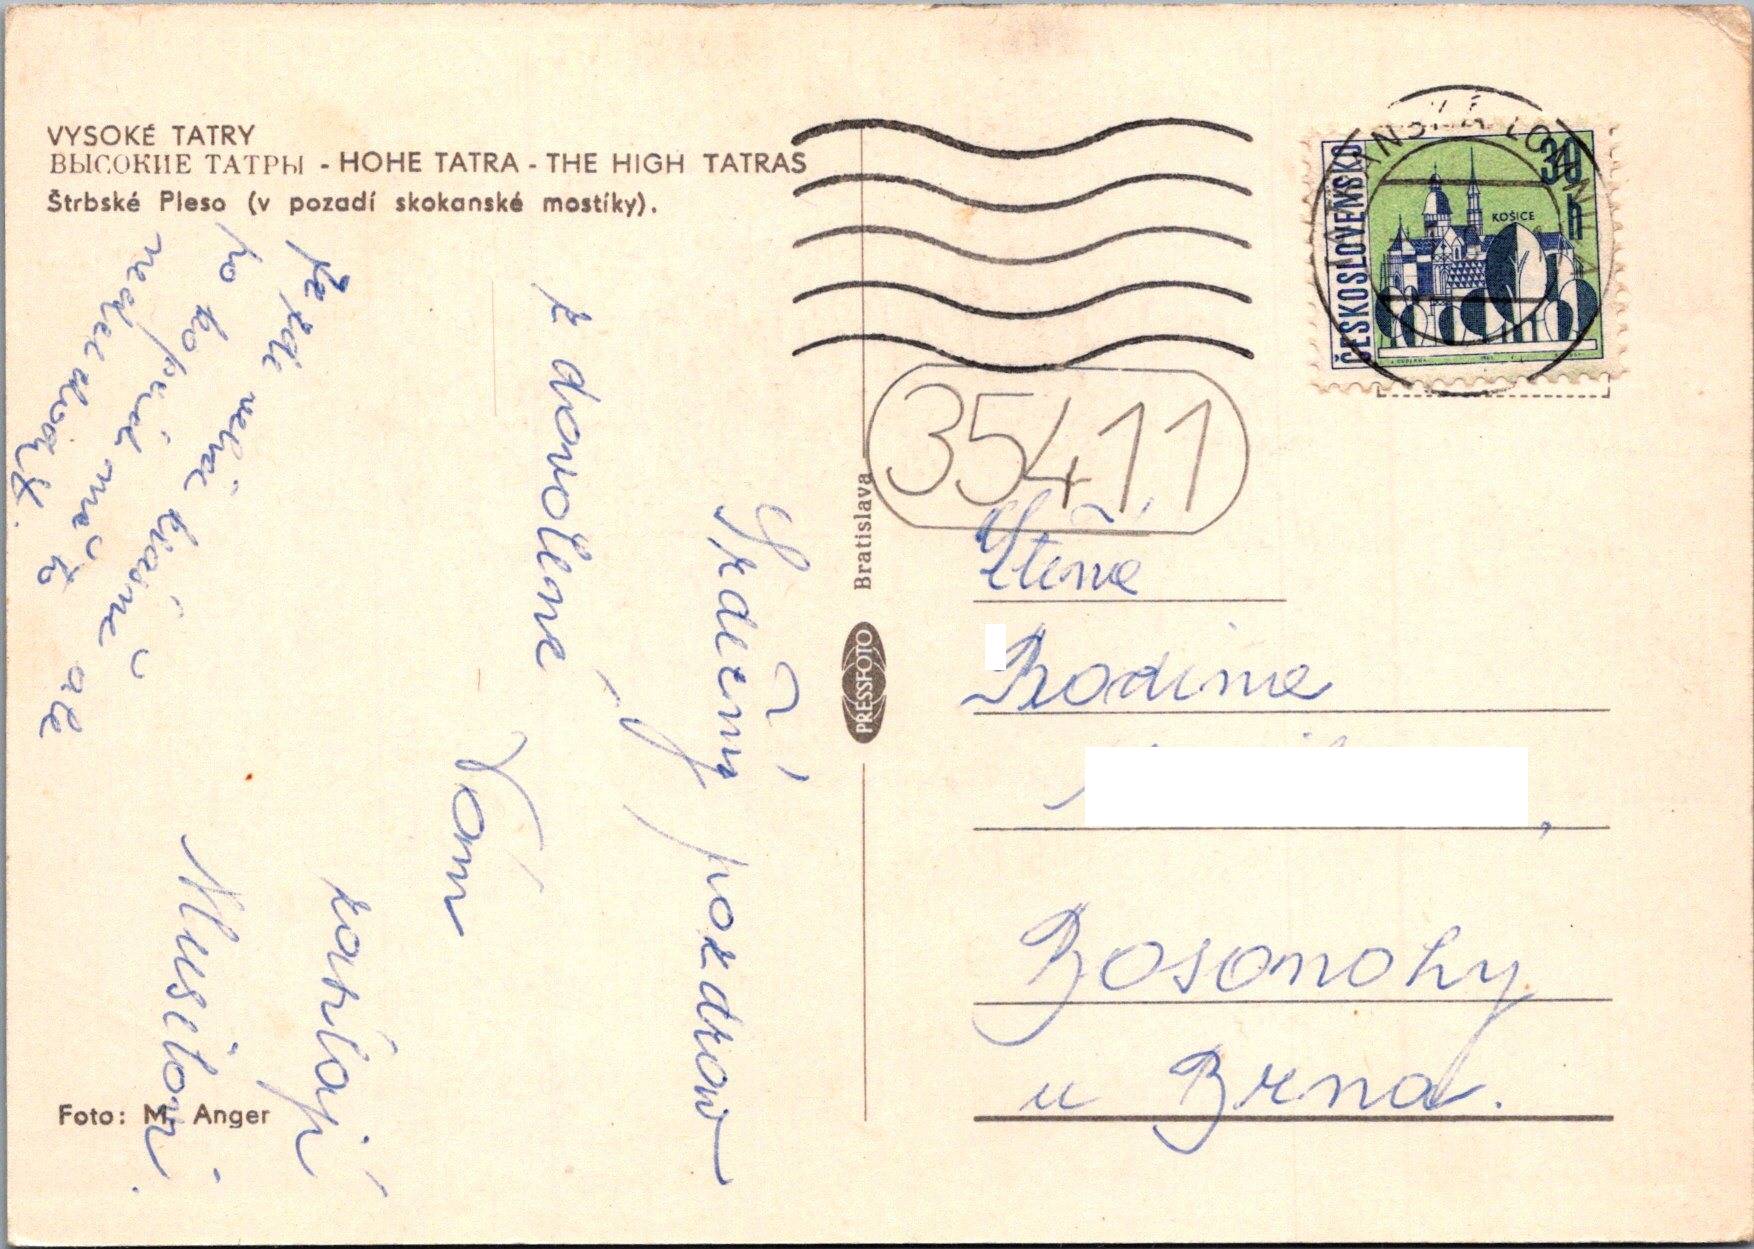 VYSOKÉ TATRY
ВЫСОКИЕ ТАТРЫ - HOHE TATRA - THE HIGH TATRAS
Štrbské Pleso (v pozadí skokanské mostíky).
Srdečný pozdrav
z dovolené
Vám
zasílají
Musilovi
Je zde velmi krásně
ale
Foto: M. Anger
PRESSFOTO Bratislava
ČESKOSLOVENSKO
30 h
KOŠICE
TATRANSKÁ LOMNICA
35411
Ctěná
Rodina
Bosonohy
u Brna.